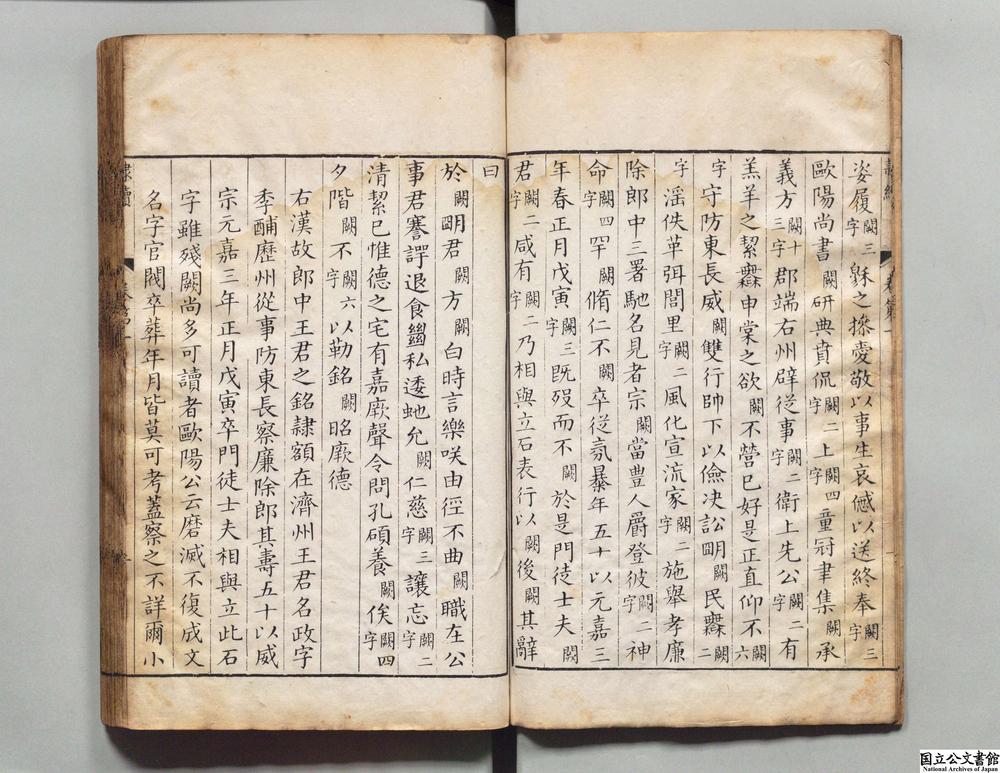 姿履闕三字繇之摖愛敬以事生哀慽以送終奉闕三字
歐陽尚書闕研典賁侃闕二字上闕四字童冠聿集闕承
義方闕十三字郡端右州辟従事闕二字衛上先公闕二字有
羔羊之絜申棠之欲闕不營巳好是正直仰不闕六
字守防東長威闕雙行帥下以儉决訟朙闕民闕二
字滛佚革弭閭里闕二字風化宣流家闕二字施舉孝廉
除郎中三署馳名見者宗闕當豊人爵登彼闕二字神
命闕四字罕闕脩仁不闕卒従氛㬥年五十以元嘉三
年春正月戊寅闕三字既歿而不闕於是門徒士夫闕
君闕二字咸有闕二字乃相與立石表行以闕後闕其辭
曰
於闕朙君闕方闕白時言樂咲由徑不曲闕職在公
事君謇諤退食幽私逶虵允闕仁慈闕三字讓忘闕二字
清絜巳惟德之宅有嘉厥聲令問孔碩養闕俟闕四字
夕階闕不闕六字以勒銘闕昭厥德
右漢故郎中王君之銘隸額在濟州王君名政字
季酺歷州從事防東長察廉除郎其壽五十以威
宗元嘉三年正月戊寅卒門徒士夫相與立此石
字雖殘闕尚多可讀者歐陽公云磨滅不復成文
名字官閥卒葬年月皆莫可考蓋察之不詳爾小
隸續
国立公文書館
National Archives of Japan